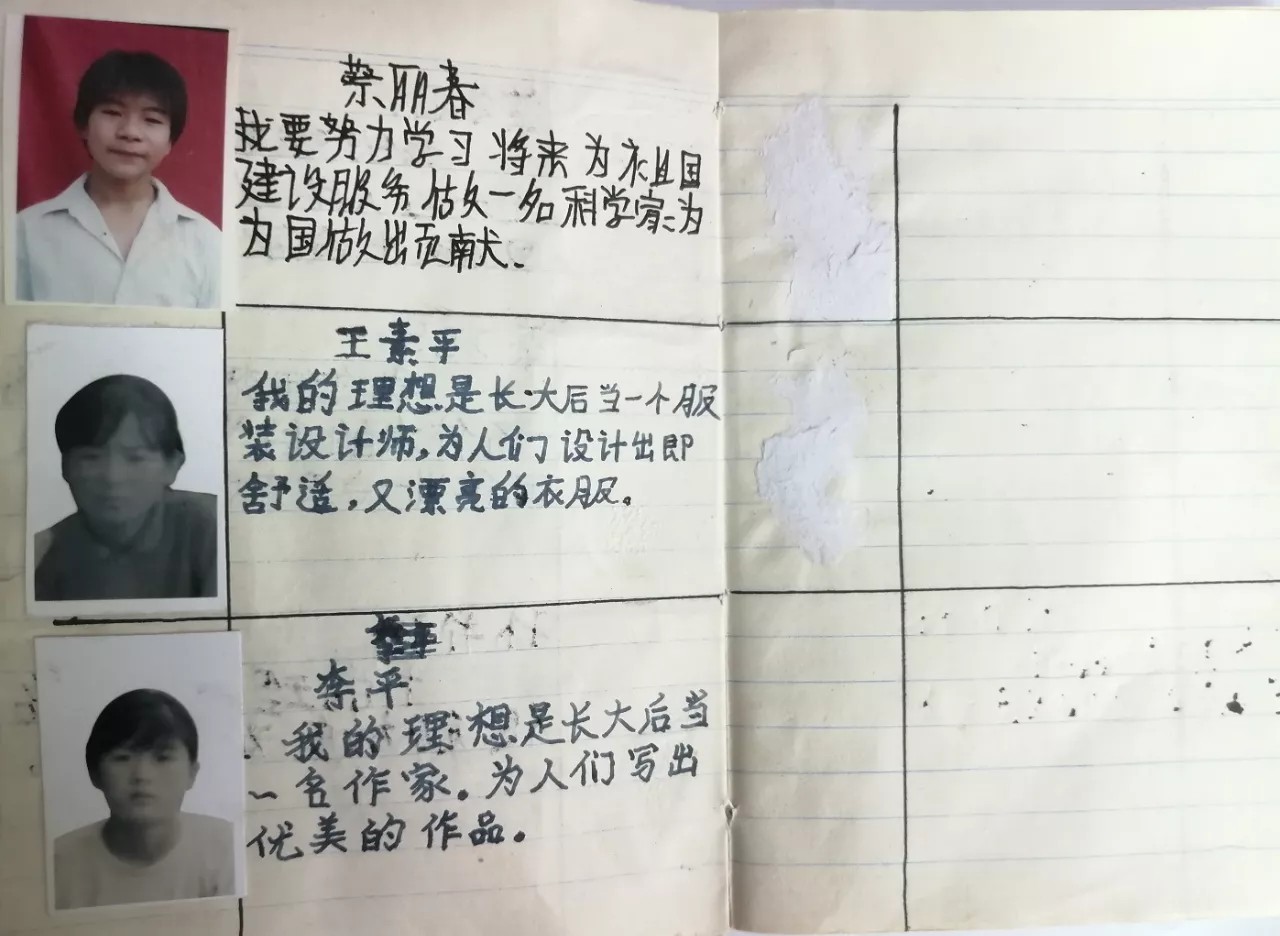 蔡丽春
我要努力学习 将来为祖国
建设服务 做一名科学家为
为国做出贡献.
王素平
我的理想是长大后当一个服
装设计师,为人们设计出即
舒适,又漂亮的衣服。
李平
我的理想是长大后当
一名作家。为人们写出
优美的作品。